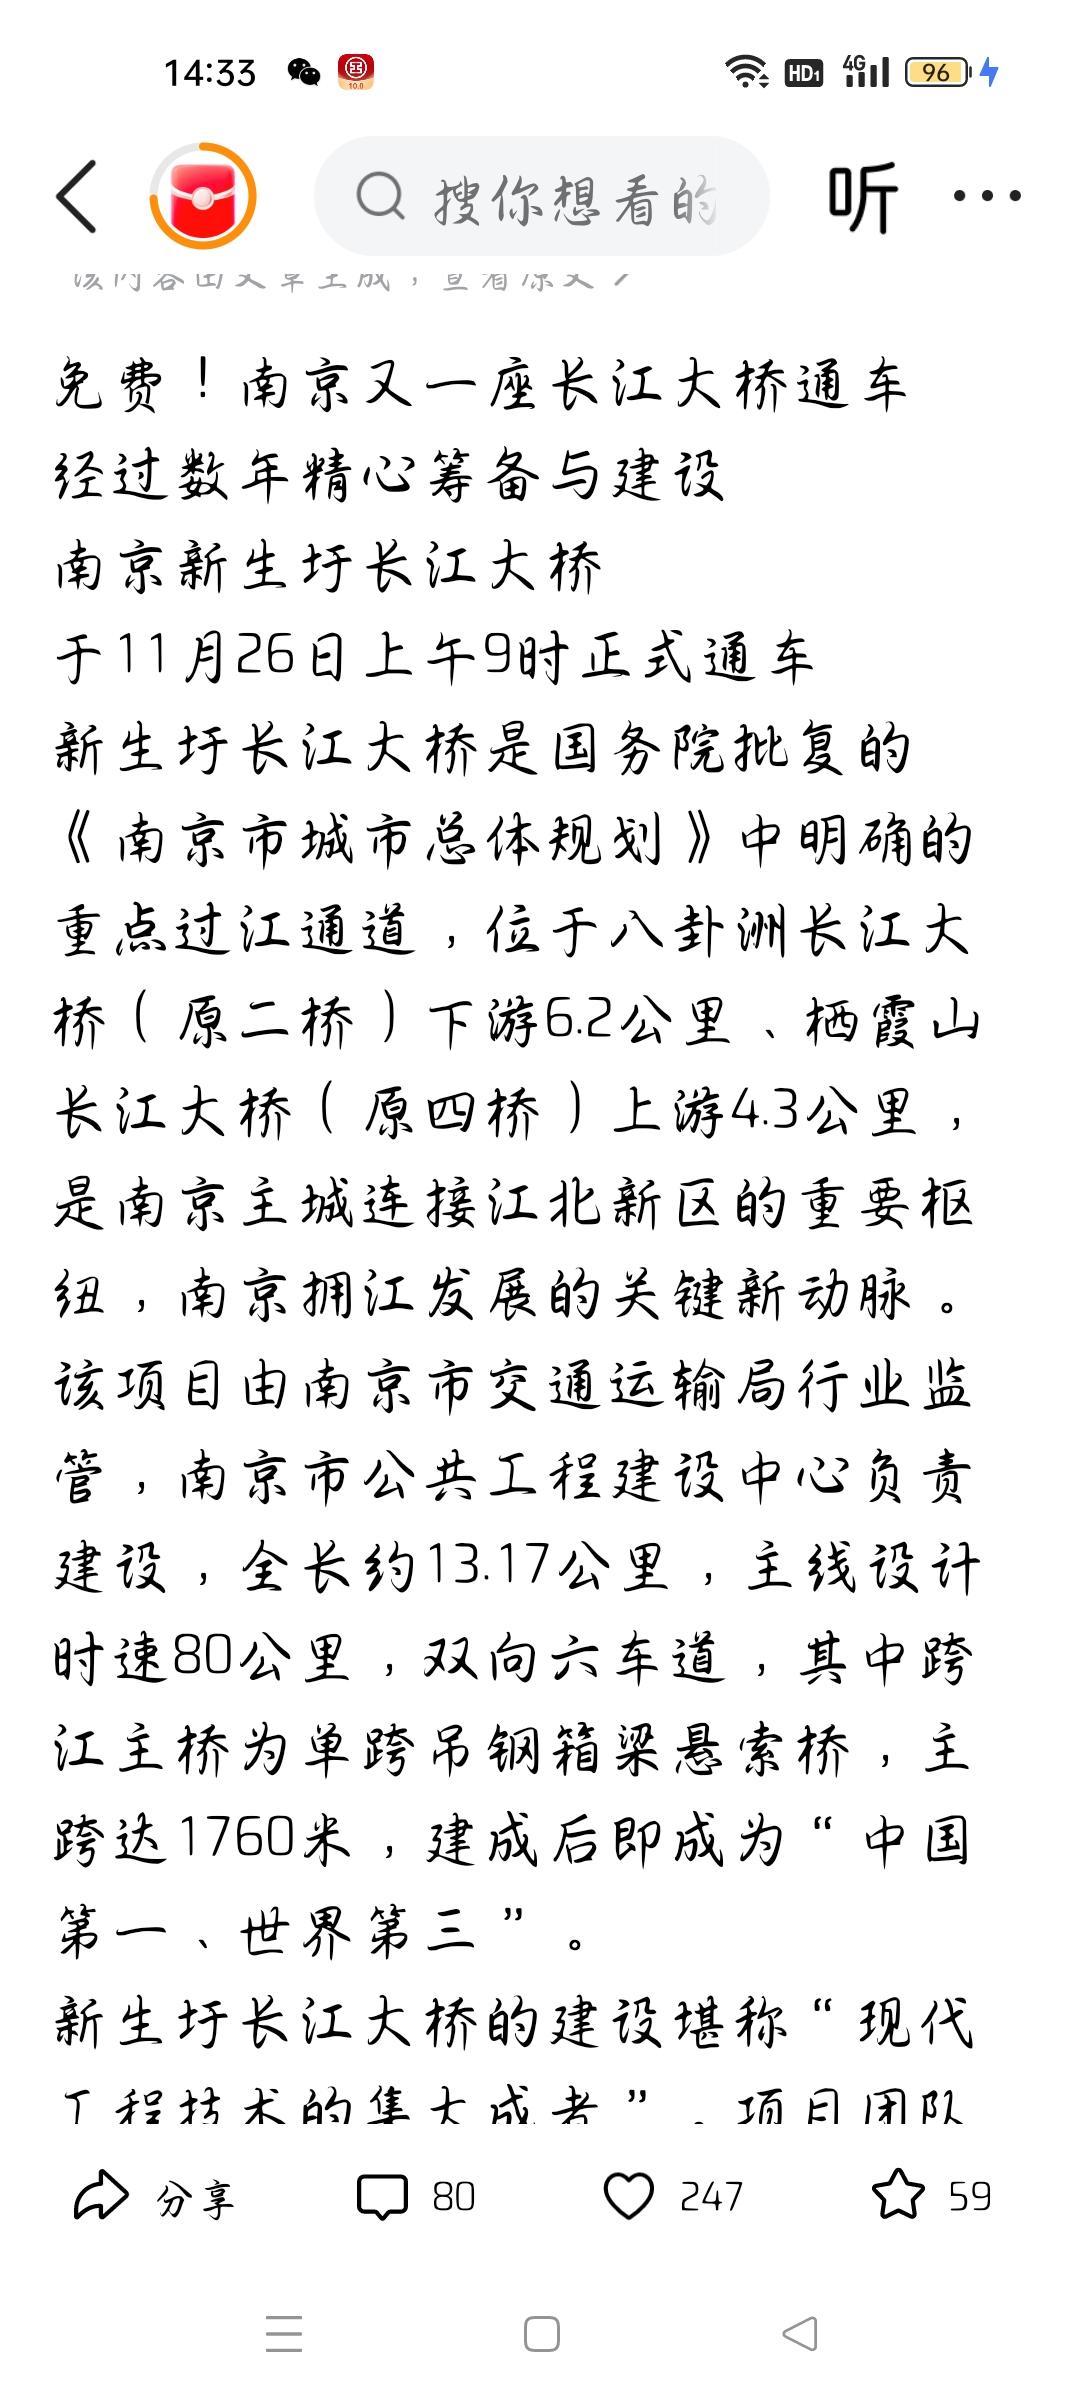 14:33
10.0
HD1
4G
96
搜你想看的
听
该内容由文章生成，查看原文
免费！南京又一座长江大桥通车
经过数年精心筹备与建设
南京新生圩长江大桥
于11月26日上午9时正式通车
新生圩长江大桥是国务院批复的
《南京市城市总体规划》中明确的
重点过江通道，位于八卦洲长江大
桥（原二桥）下游6.2公里、栖霞山
长江大桥（原四桥）上游4.3公里，
是南京主城连接江北新区的重要枢
纽，南京拥江发展的关键新动脉。
该项目由南京市交通运输局行业监
管，南京市公共工程建设中心负责
建设，全长约13.17公里，主线设计
时速80公里，双向六车道，其中跨
江主桥为单跨吊钢箱梁悬索桥，主
跨达1760米，建成后即成为“中国
第一、世界第三”。
新生圩长江大桥的建设堪称“现代
工程技术的集大成者”。项目团队
分享
80
247
59